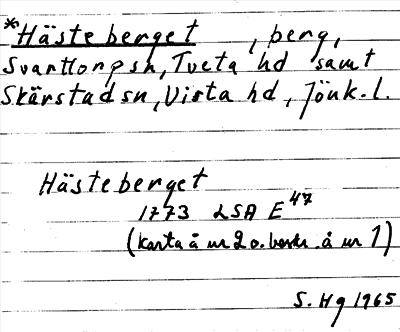 *Hästeberget, berg,
Svarttorps sn, Tveta hd samt
Skärstad sn, Vista hd, Jönk. l.
Hästeberget
1773 LSA E 47
(karta å nr 2 o. beskr. å nr 1)
S. Hg 1965